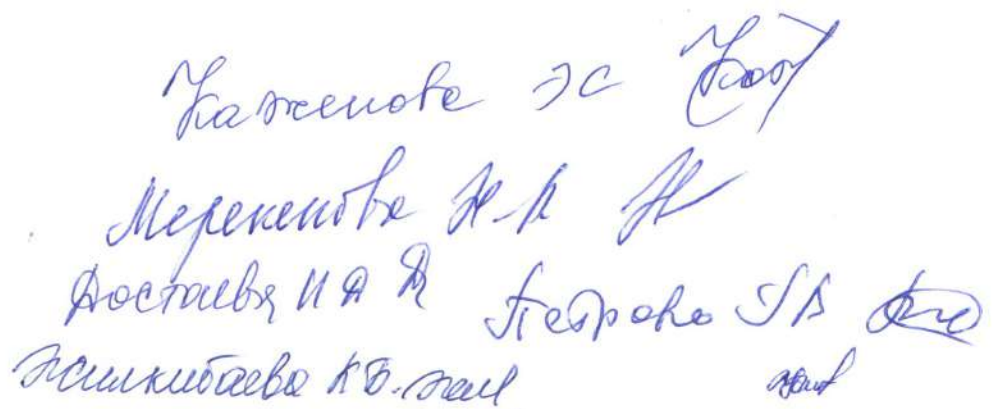 Каженова ЖС
Мерекенова Н.К
Достаева И А Петрова ГВ
Жилкибаева К Б.